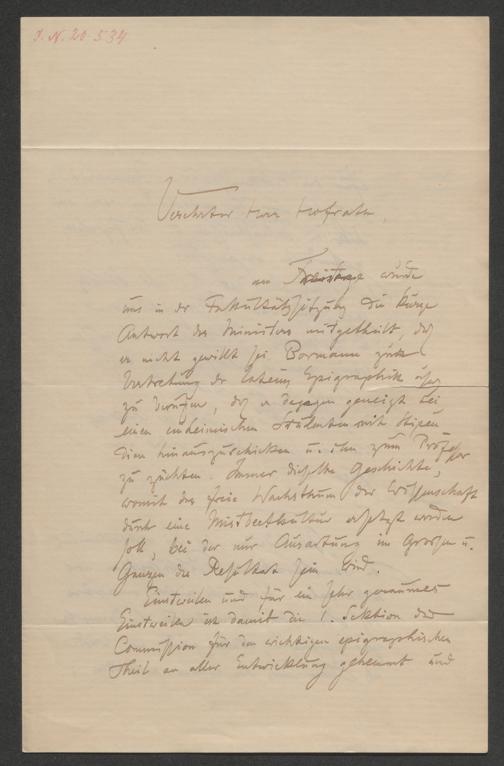 I. N. 20.534
Verehrter Herr Hofrath,
am Freitag wurde
uns in der Fakultätssitzung die kurze
Antwort des Ministers mitgetheilt, daß
er nicht gewillt sei Bormann zur
Vertretung der latein. Epigraphik
zu berufen, daß er dagegen geneigt sei
einen einheimischen Studenten mit Stipen
dien hinauszuschicken u. ihn zum Professor
zu züchten. Immer dieselbe Geschichte,
womit das freie Wachsthum der Wissenschaft
durch eine Mistbeetkultur ersetzt werden
soll, bei der nur Ausartung im Großen u.
Ganzen das Resultat sein wird.
Einstweilen und für ein sehr geraumes
Einstweilen ist damit die 1. Sektion der
Commission für den wichtigen epigraphischen
Theil an aller Entwicklung gehemmt und